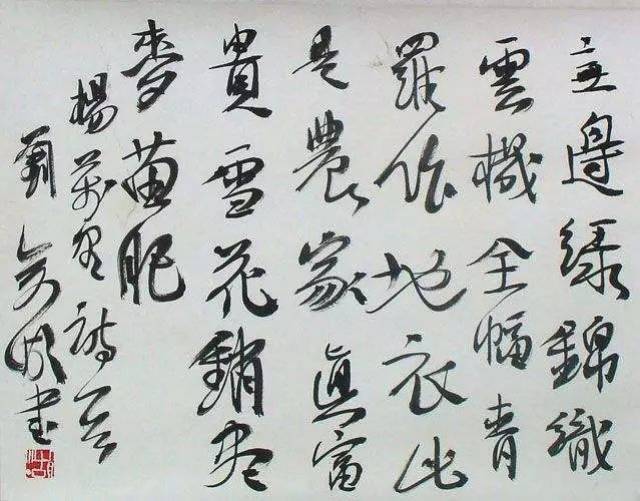 無邊綠錦織
雲機全幅青
羅作地衣此
是農家真富
貴雪花銷盡
麥苗肥
楊萬里詩
劉 書